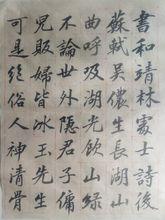 書和靖林處士詩後
蘇軾吳儂生長湖山
曲呼吸湖光飲山綠
不論世外隱君子傭
兒販婦皆冰玉先生
可是絕俗人神清骨